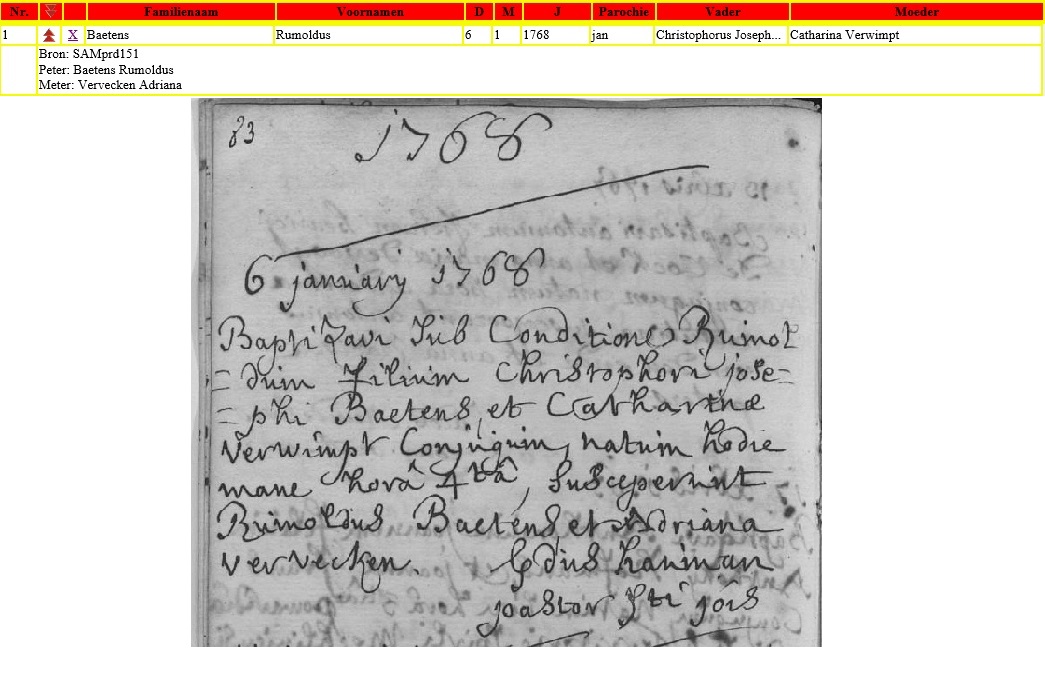 Nr. Familienaam Voornamen D M J Parochie Vader Moeder
1 X Baetens Rumoldus 6 1 1768 jan Christophorus Joseph... Catharina Verwimpt
Bron: SAMprd151
Peter: Baetens Rumoldus
Meter: Vervecken Adriana
83
1768
6 january 1768
Baptizavi sub Conditione Rumol
= dum filium Christophori jose=
= phi Baetens, et Catharinæ
Verwimpt Conjugum, natum hodie
mane horâ 4tâ, susceperunt
Rumoldus Baetens, et Adriana
Vervecken.
pastor Sti jois